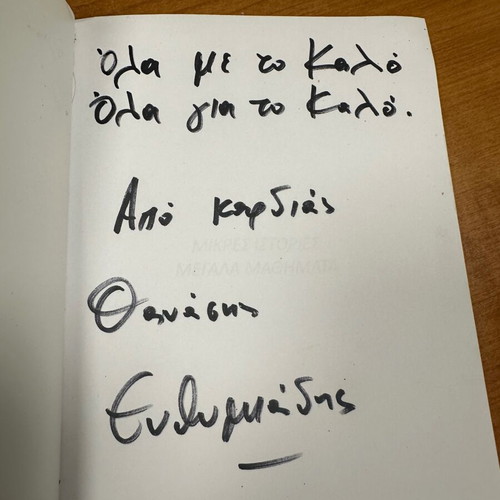 Όλα με το Καλό
Όλα για το Καλό.
Από καρδιάς
ΜΙΚΡΕΣ ΙΣΤΟΡΙΕΣ
ΜΕΓΑΛΑ ΜΑΘΗΜΑΤΑ
Θανάσης
Ευθυμιάδης